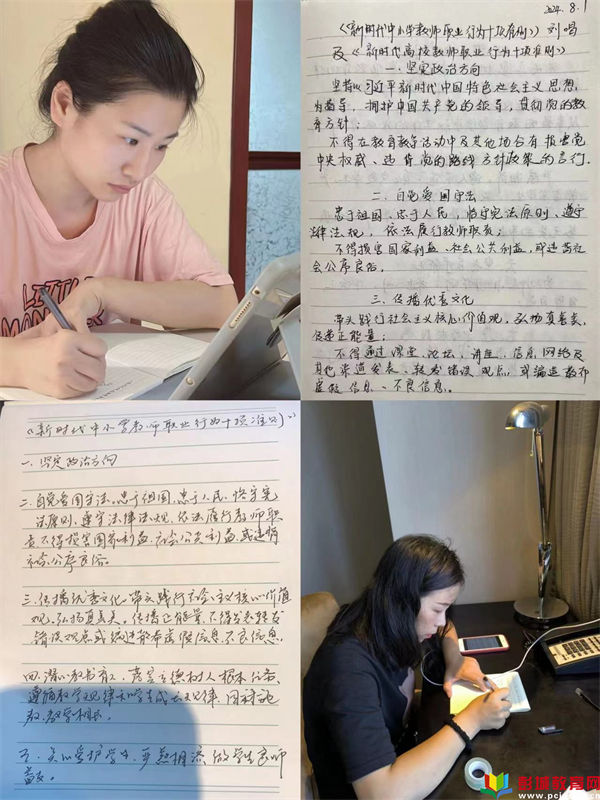 LITTLE
MONSTER
2024.8.1
《新时代中小学教师职业行为十项准则》 刘唱
及《新时代高校教师职业行为十项准则》
一、坚定政治方向
坚持以习近平新时代中国特色社会主义思想
为指导，拥护中国共产党的领导，贯彻党的教
育方针；
不得在教育教学活动中及其他场合有损害党
中央权威、违背党的路线方针政策的言行。
二、自觉爱国守法
忠于祖国、忠于人民，恪守宪法原则、遵守
法律法规，依法履行教师职责；
不得损害国家利益、社会公共利益，或违背社
会公序良俗。
三、传播优秀文化
带头践行社会主义核心价值观，弘扬真善美，
传递正能量；
不得通过课堂、论坛、讲座、信息网络及
其他渠道发表、转发错误观点，或编造散布
虚假信息、不良信息。
《新时代中小学教师职业行为十项准则》
一、坚定政治方向
二、自觉爱国守法。忠于祖国，忠于人民，恪守宪
法原则，遵守法律法规，依法履行教师职
责不得损害国家利益，社会公共利益，或违背
社会公序良俗。
三、传播优秀文化。带头践行社会主义核心价值
观，弘扬真善美，传播正能量，不得发表转发
错误观点或编造散布虚假信息、不良信息。
四、潜心教书育人，落实立德树人根本任务，
遵循教学规律和学生成长规律，因材施
教，教学相长。
五、关心爱护学生，严慈相济，做学生良师
益友。
彭城教育网
www.pcj